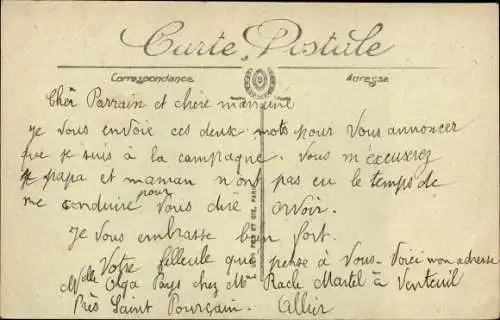 Carte Postale
Correspondance
Adresse
Chèr Parrain et chère marraine
je vous envoie ces deux mots pour vous annoncer
que je suis à la campagne. Vous m'éxcuserez
papa et maman n'ont pas eu le temps de
me conduire pour vous dire orvoir.
Je vous embrasse bien fort.
Votre filleule que pense à vous. Voici mon adresse
Melle Olga Pays chez Mme Racle Martel à Venteuil
Près Saint Pourçain. Allier
LEVY FILS ET CIE, PARIS